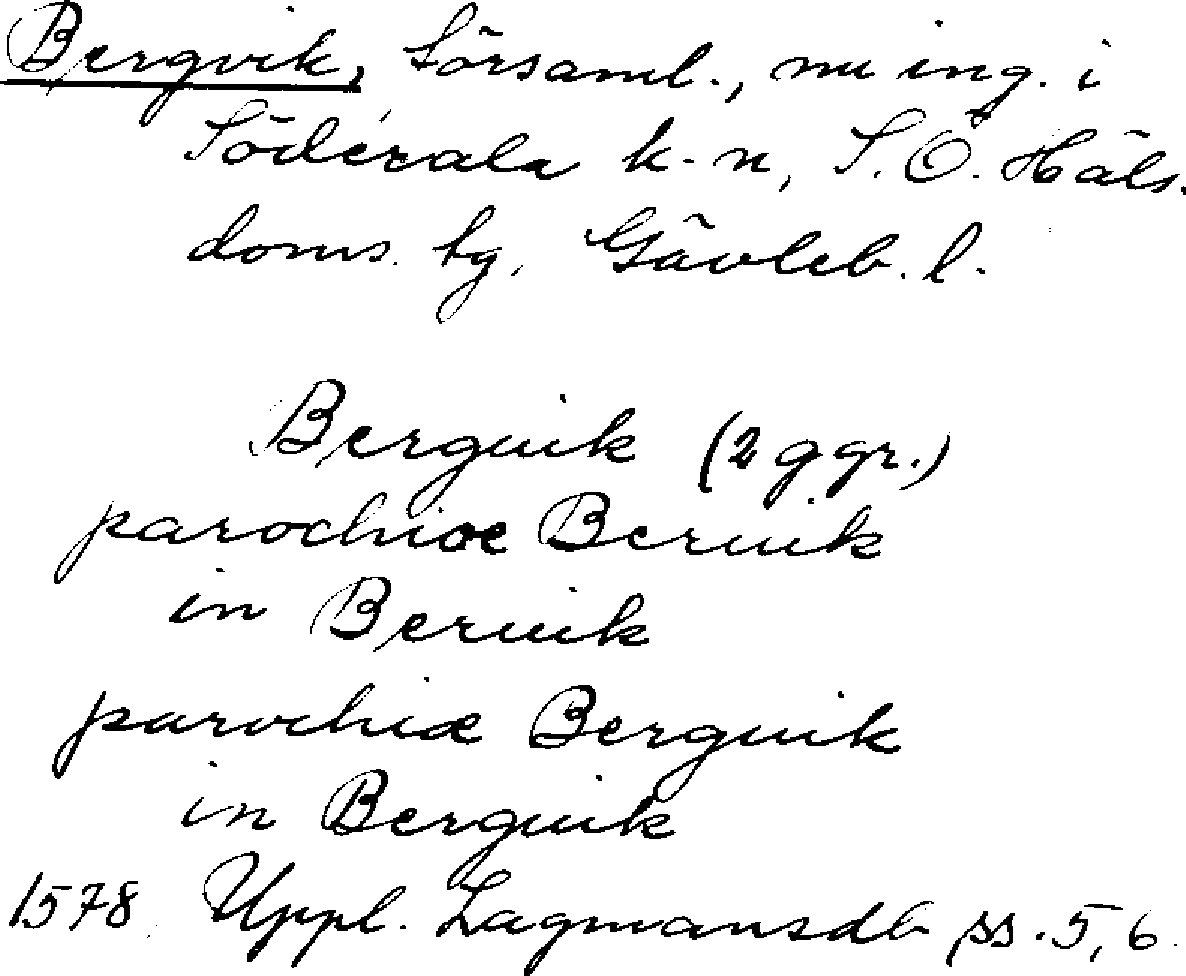 Bergvik, församl., nu ing. i
Söderala k-n, S.Ö. Häls.
doms. tg, Gävleb. l.
Berguik (2 ggr.)
parochiæ Beruik
in Beruik
parochiæ Berguik
in Berguik
1578 Uppl. Lagmansdb ss. 5, 6.